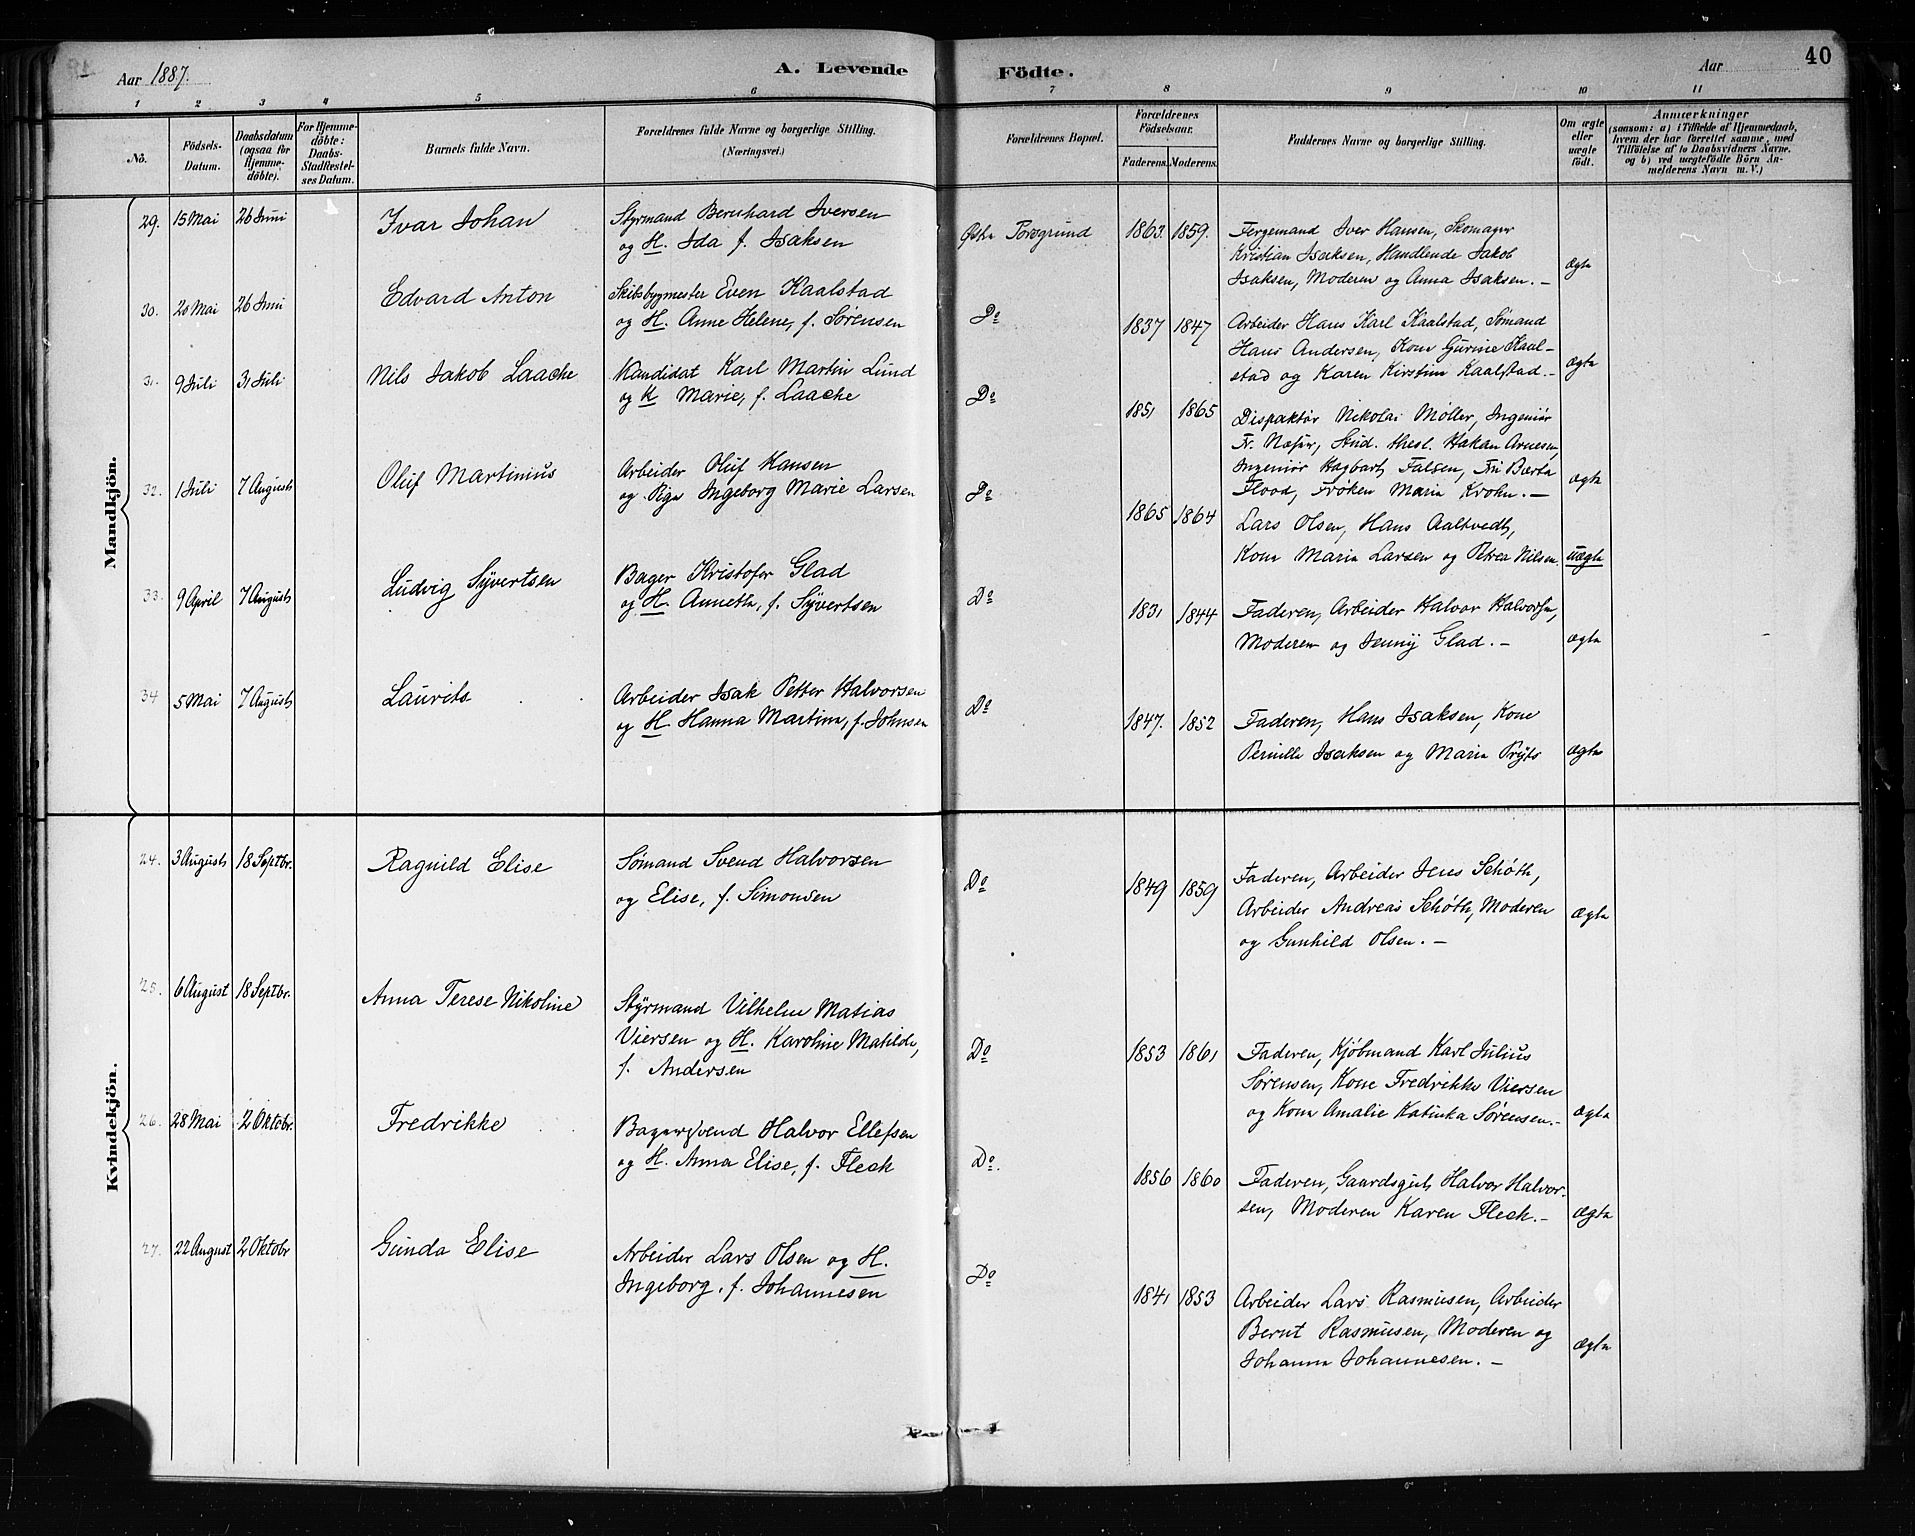 Aar 1887.
A. Levende
Födte.
Aar
40
1 2 3 4 5 6 7 8 9 10 11
No.
Födsels-
Datum.
Daabsdatum
(ogsaa for
Hjemme-
döbte).
For Hjemme-
döbte:
Daabs-
Stadfæstel-
ses Datum.
Barnets fulde Navn.
Forældrenes fulde Navne og borgerlige Stilling.
(Næringsvei.)
Forældrenes Bopæl.
Forældrenes
Födselsaar.
Faderens. Moderens.
Faddernes Navne og borgerlige Stilling.
Om ægte
eller
uægte
födt.
Anmærkninger
(saasom: a) i Tilfælde af Hjemmedaab,
hvem der har forrettet samme, med
Tilföielse af to Daabsvidners Navne.
og b) ved uægtefödte Börn An-
melderens Navn m. V.)
Mandkjön.
29. 15 Mai 26 Juni
Ivar Johan
Styrmand Bernhard Iversen
og H. Ida f. Isaksen
Østre Porsgrund
1863. 1859.
Fergemand Iver Hansen, Skomager
Kristian Isaksen, Handlende Jakob
Isaksen, Moderen og Anna Isaksen. —
ægte
30. 20 Mai 26 Juni
Edvard Anton
Skibsbygmester Even Kaalstad
og H. Anne Helene, f. Sørensen
Do
1837 1847
Arbeider Hans Karl Kaalstad, Sømand
Hans Andersen, Kone Gurine Kaal-
stad og Karen Kirstine Kaalstad. —
ægte
31. 9 Juli 31 Juli
Nils Jakob Laache
Kandidat Karl Martin Lund
og H Marie, f. Laache
Do
1851 1865
Dispaktør Nikolai Møller, Ingeniør
Fr. Næser, Stud. theol. Hakan Arnesen,
Ingeniør Hagbart Falsen, Fru Barta
Flood, Frøken Maria Krohn. —
ægte
32. 1 Juli 7 August
Oluf Martinius
Arbeider Oluf Hansen
og Pige Ingeborg Marie Larsen
Do
1865 1864
Lars Olsen, Hans Aaltvedt,
Kone Maria Larsen og Petrea Nilsen
uægte
33. 9 April 7 August
Ludvig Syvertsen
Bager Kristofer Glad
og H. Annette, f. Syvertsen
Do
1831 1844
Faderen, Arbeider Halvor Halvorsen,
Moderen og Jenny Glad. —
ægte
34 5 Mai 7 August
Laurits
Arbeider Isak Petter Halvorsen
og H Hanna Martine, f. Johnsen
Do
1847. 1852
Faderen, Hans Isaksen, Kone
Pernille Isaksen og Maria Pryts
ægte
Kvindekjön.
24. 3 August 18 Septbr.
Ragnild Elise
Sømand Svend Halvorsen
og Elise, f. Simonsen
Do
1849 1859
Faderen, Arbeider Jens Schøth,
Arbeider Andreas Schøth, Moderen
og Gunhild Olsen. —
ægte
25. 6 August 18 Septbr.
Anna Terese Nikoline
Styrmand Vilhelm Matias
Viersen og H. Karoline Matilde,
f. Andersen
Do
1853 1861
Faderen, Kjøbmand Karl Julius
Sørensen, Kone Fredrikke Viersen
og Kone Amalie Katinka Sørensen. —
ægte
26. 28 Mai 2 Oktobr.
Fredrikke
Bagersvend Halvor Ellefsen
og H. Anna Elise, f. Fleck
Do.
1856 1860
Faderen, Gaardsgut Halvor Halvor-
sen, Moderen Karen Fleck. —
ægte
27. 22 August 2 Oktobr
Gunda Elise
Arbeider Lars Olsen og H.
Ingeborg, f. Johannesen
Do
1841 1853
Arbeider Lars Rasmusen, Arbeider
Bernt Rasmusen, Moderen og
Johanne Johannesen. —
ægte